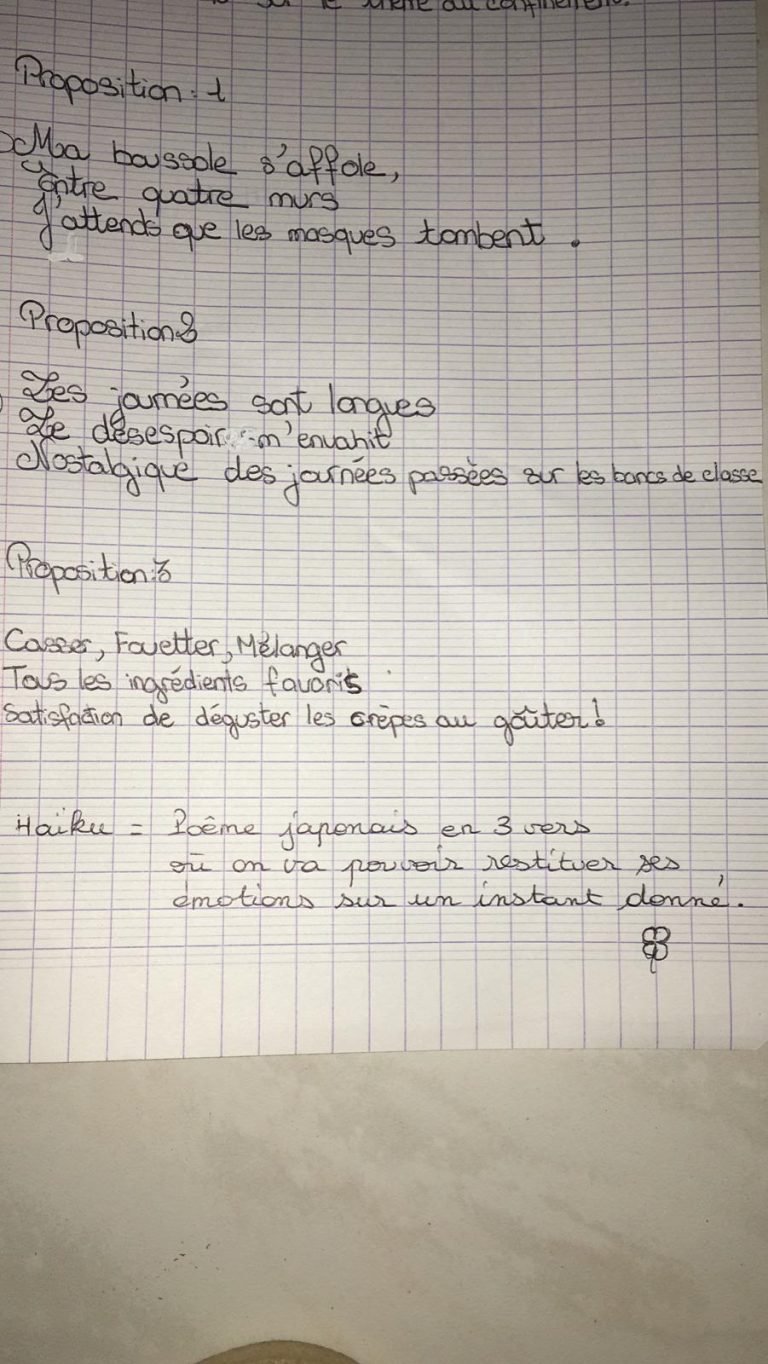 sur le thème du confinement.
Proposition : 1
Ma boussole s'affole,
Entre quatre murs
J'attends que les masques tombent .
Proposition 2
Les journées sont longues
Le désespoir m'envahit
Nostalgique des journées passées sur les bancs de classe
Proposition : 3
Casser, Fouetter, Mélanger
Tous les ingrédients favoris
Satisfaction de déguster les crêpes au goûter !
Haiku = Poême japonais en 3 vers
où on va pouvoir restituer ses
émotions sur un instant donné.